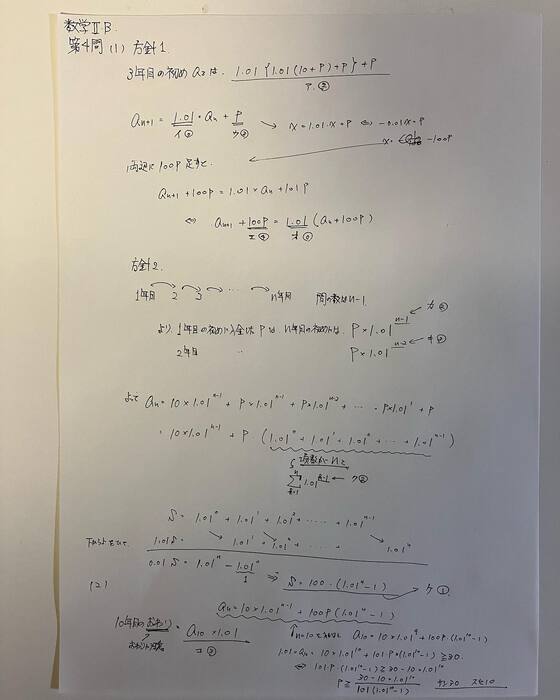 数学ⅡB
第4問 (1) 方針1.
3年目の初め a₃ は. 1.01{1.01(10+P)+P}+P
ア.③
aₙ₊₁ = 1.01・aₙ + P → x = 1.01x + P ⇔ -0.01x = P
イ⓪ ウ③
x = -100P
両辺に100P足すと
aₙ₊₁ + 100P = 1.01×aₙ + 101P
⇔ aₙ₊₁ + 100P = 1.01 (aₙ + 100P)
エ④ オ⓪
方針2.
1年目 2 3 … n年目 間の数は n-1
より. 1年目の初めに入金した P は n年目の初めには. P×1.01ⁿ⁻¹ ← カ②
2年目 〃 P×1.01ⁿ⁻² ← キ③
よって aₙ = 10×1.01ⁿ⁻¹ + P×1.01ⁿ⁻¹ + P×1.01ⁿ⁻² + … P×1.01¹ + P
= 10×1.01ⁿ⁻¹ + P・(1.01⁰ + 1.01¹ + 1.01² + … + 1.01ⁿ⁻¹)
項数が n で
Σ 1.01ᵏ⁻¹ ← ク②
S = 1.01⁰ + 1.01¹ + 1.01² + …… + 1.01ⁿ⁻¹
1.01S = 1.01¹ + 1.01² + …… 1.01ⁿ
0.01 S = 1.01ⁿ - 1.01⁰ ⇒ S = 100・(1.01ⁿ-1) ケ①
1
(2)
aₙ = 10×1.01ⁿ⁻¹ + 100P(1.01ⁿ-1)
10年目の終わり = a₁₀×1.01
コ③
a₁₀ = 10×1.01⁹ + 100P・(1.01¹⁰-1)
1.01×aₙ = 10×1.01¹⁰ + 101・P×(1.01¹⁰-1) ≧ 30.
⇔ 101P・(1.01¹⁰-1) ≧ 30-10×1.01¹⁰
P ≧ 30-10×1.01¹⁰ / 101(1.01¹⁰-1) サシ30 スセ10